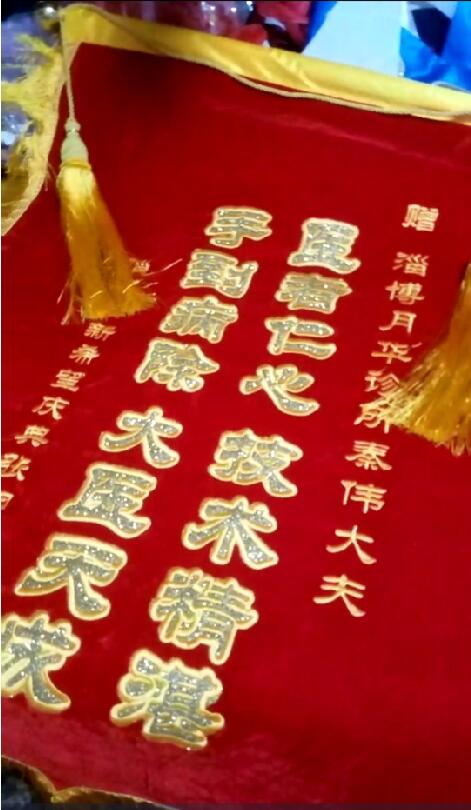 赠 淄博月华诊所秦伟大夫
医者仁心 技术精湛
手到病除 大医天
新希望庆典